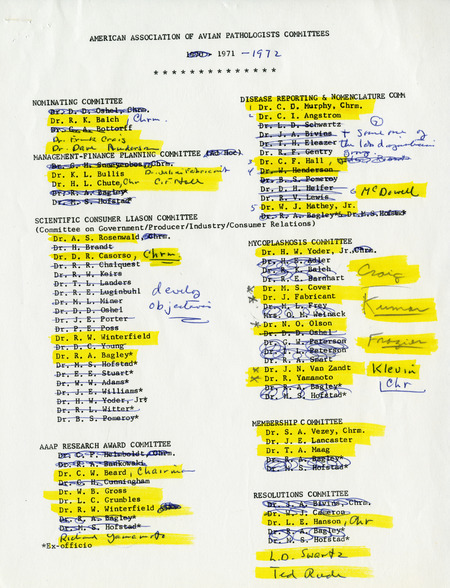 AMERICAN ASSOCIATION OF AVIAN PATHOLOGISTS COMMITTEES
1970 - 1971 -1972
* * * * * * * * * * * * * *
NOMINATING COMMITTEE
Dr. D. D. Oshel, Chrm.
Dr. R. K. Balch, Chrm.
Dr. G. A. Bottorff
Dr. Frank Craig
Dr. Dave Anderson
MANAGEMENT-FINANCE PLANNING COMMITTEE
Dr. K. L. Bullis Dr. Julius Fabricant
Dr. H. L. Chute, Chr C. F. Hall
Dr. R. A. Bagley*
Dr. M. S. Hofstad*
SCIENTIFIC CONSUMER LIASON COMMITTEE
(Committee on Government/Producer/Industry/Consumer Relations)
Dr. A. S. Rosenwald, Chrm.
Dr. H. Brandt
Dr. D. R. Casorso, Chrm
Dr. R. R. Chalquest
Dr. R. W. Keirs
Dr. T. L. Landers
Dr. R. E. Luginbuhl
Dr. M. L. Miner
Dr. D. D. Oshel
Dr. J. E. Porter
Dr. P. E. Poss
Dr. R. W. Winterfield
Dr. D. C. Young
Dr. R. A. Bagley*
Dr. M. S. Hofstad*
Dr. E. E. Stuart*
Dr. W. W. Adams*
Dr. J. E. Williams*
Dr. H. W. Yoder, Jr*
Dr. R. L. Witter*
Dr. B. S. Pomeroy*
develop
objectives
AAAP RESEARCH AWARD COMMITTEE
Dr. C. F. Helmboldt, Chrm.
Dr. R. A. Bankowski
Dr. C. W. Beard, Chairman
Dr. C. H. Cunningham
Dr. W. B. Gross
Dr. L. C. Grumbles
Dr. R. W. Winterfield
Dr. R. A. Bagley*
Dr. M. S. Hofstad*
Richard Yamamoto
*Ex-officio
DISEASE REPORTING & NOMENCLATURE COMM
1 Dr. C. D. Murphy, Chrm.
2 Dr. C. I. Angstrom
Dr. L. D. Schwartz
Dr. J. A. Bivins
Dr. T. H. Eleazer
Dr. R. F. Gentry
+ some one of
the lab diagnostician
group
3 Dr. C. F. Hall,
4 Dr. W. Henderson
Dr. B. S. Pomroy
Dr. D. H. Helfer
Dr. E. V. Lewis
McDowell
5 Dr. W. J. Mathey, Jr.
Dr. R. A. Bagley* Dr. M.S. Hofstad*
MYCOPLASMOSIS COMMITTEE
Dr. H. W. Yoder, Jr, Chrm.
Dr. H. E. Adler
Dr. R. K. Balch
Dr. R. E. Barnhart
Dr. M. S. Cover
Dr. J. Fabricant
Dr. M. L. Frey
Mrs. O. M. Weinack
Dr. N. O. Olson
Dr. D. D. Oshel
Dr. C. W. Peterson
Dr. I. L. Peterson
Dr. R. A. Smart
Dr. J. N. Van Zandt
Dr. R. Yamamoto
Dr. R. A. Bagley*
Dr. M. S. Hofstad*
Craig
Kumar
Frazier
Kleven
Chr
MEMBERSHIP COMMITTEE
Dr. S. A. Vezey, Chrm.
Dr. J. E. Lancaster
Dr. T. A. Maag
Dr. R. A. Bagley*
Dr. M. S. Hofstad*
RESOLUTIONS COMMITTEE
Dr. S. A. Bivins, Chrm.
Dr. W. J. Cameron
Dr. L. E. Hanson, Chr
Dr. R. A. Bagley*
Dr. M. S. Hofstad*
L.D. Swartz
Ted Rude